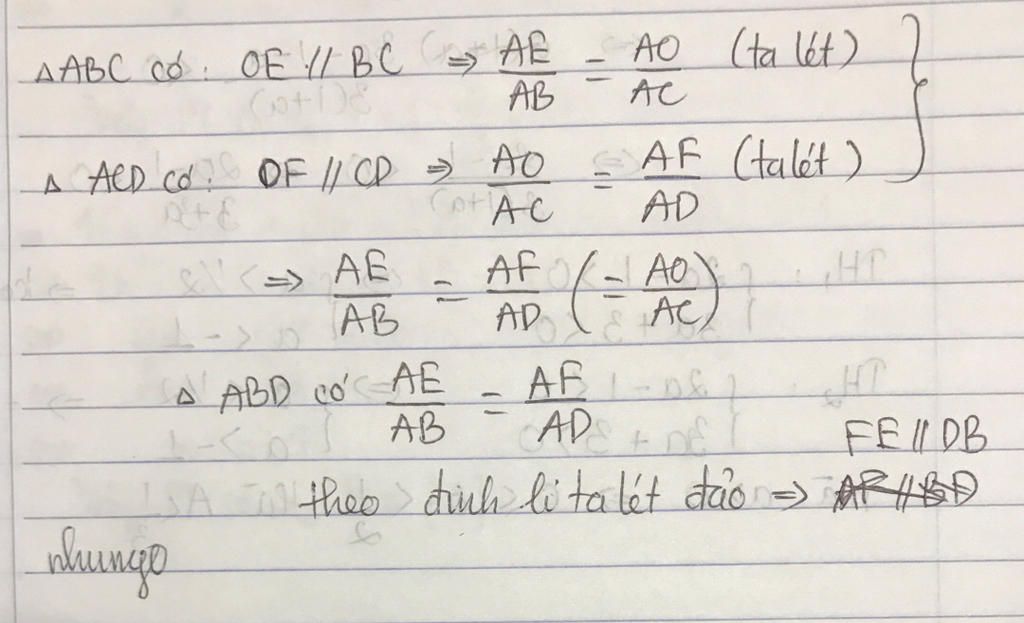 △ABC có: OE // BC ⇒ AE/AB = AO/AC (ta lét)
△ ACD có: OF // CD ⇒ AO/AC = AF/AD (ta lét)
⇒ AE/AB = AF/AD (= AO/AC)
△ ABD có AE/AB = AF/AD
FE // DB
theo định lí ta lét đảo ⇒